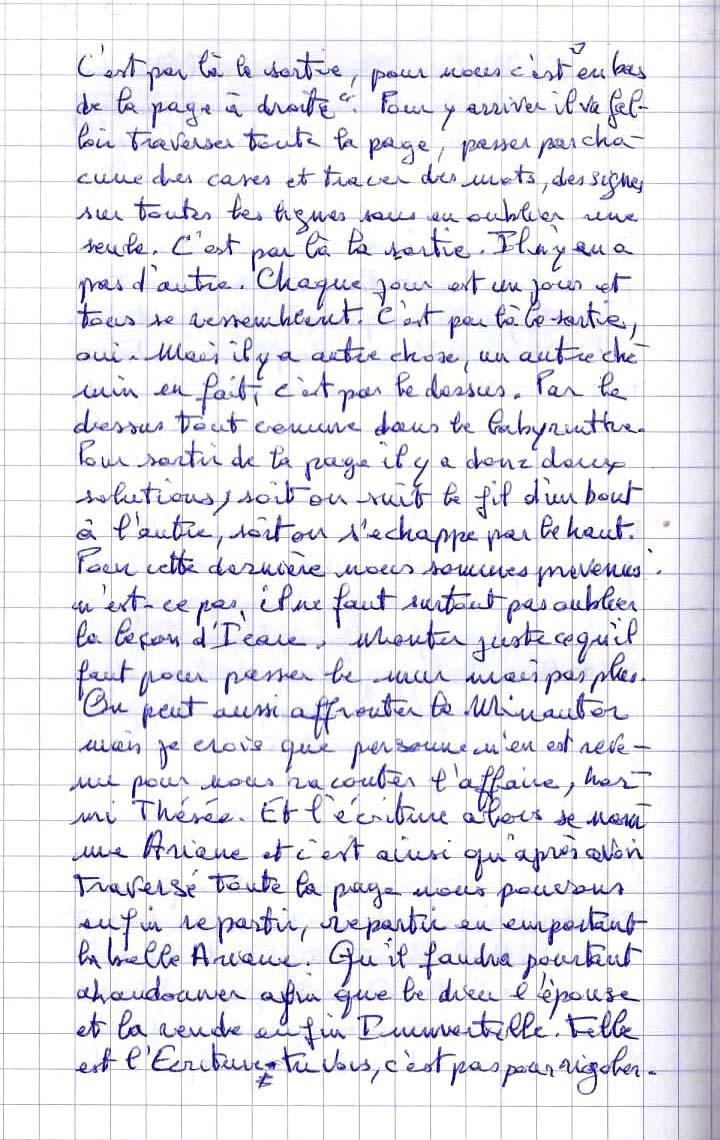 C'est par là la sortie, pour nous c'est "en bas
de la page à droite". Pour y arriver il va fal-
loir traverser toute la page, passer par cha-
cune des cases et tracer des mots, des signes
sur toutes les lignes sans en oublier une
seule. C'est par là la sortie. Il n'y en a
pas d'autre. Chaque jour est un jour et
tous se ressemblent. C'est par là la sortie,
oui. Mais il y a autre chose, un autre che-
min en fait, c'est par le dessus. Par le
dessus tout comme dans le labyrinthe.
Pour sortir de la page il y a donc deux
solutions, soit on suit le fil d'un bout
à l'autre, soit on s'échappe par le haut.
Pour cette dernière nous sommes prévenus
n'est-ce pas, il ne faut surtout pas oublier
la leçon d'Icare. Monter juste ce qu'il
faut pour passer le mur mais pas plus.
On peut aussi affronter le Minautor
mais je crois que personne n'en est reve-
nu pour nous raconter l'affaire, hor-
mi Thésée. Et l'écriture alors se nom
me Ariane et c'est ainsi qu'après avoir
traversé toute la page nous pouvons
enfin repartir, repartir en emportant
la belle Ariane. Qu'il faudra pourtant
abandonner afin que le dieu l'épouse
et la rende enfin Immortelle. Telle
est l'Ecriture tu vois, c'est pas pour rigoler.